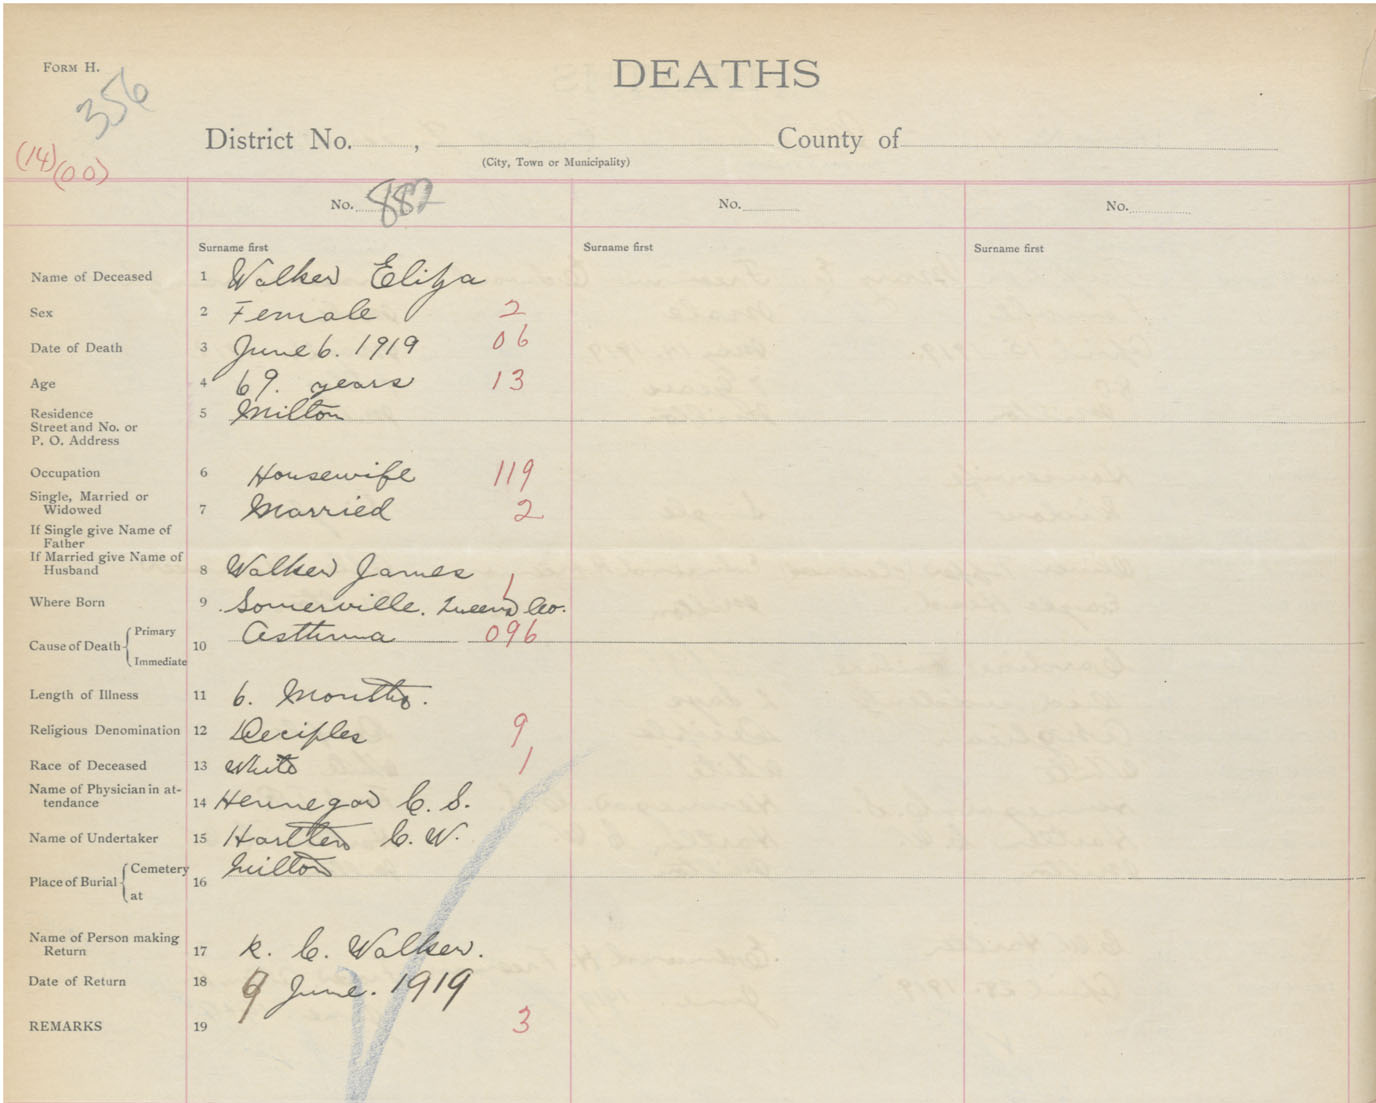 FORM H.
DEATHS
356
District No. , County of
(City, Town or Municipality)
(14)
(00)
No. 882 No. No.
Surname first Surname first Surname first
Name of Deceased 1 Walker Eliza
Sex 2 Female 2
Date of Death 3 June 6. 1919 06
Age 4 69. years 13
Residence 5 Milton
Street and No. or
P. O. Address
Occupation 6 Housewife 119
Single, Married or
Widowed 7 Married 2
If Single give Name of
Father
If Married give Name of
Husband 8 Walker James 1
Where Born 9 Somerville. Queens Co.
Cause of Death Primary Asthma 096
10
Immediate
Length of Illness 11 6. Months.
Religious Denomination 12 Deciples 9
Race of Deceased 13 White 1
Name of Physician in at-
tendance 14 Hennegar C. S.
Name of Undertaker 15 Hartlen C. W.
Place of Burial Cemetery Milton
16
at
Name of Person making
Return 17 K. C. Walker.
Date of Return 18 9 June. 1919
REMARKS 19 3